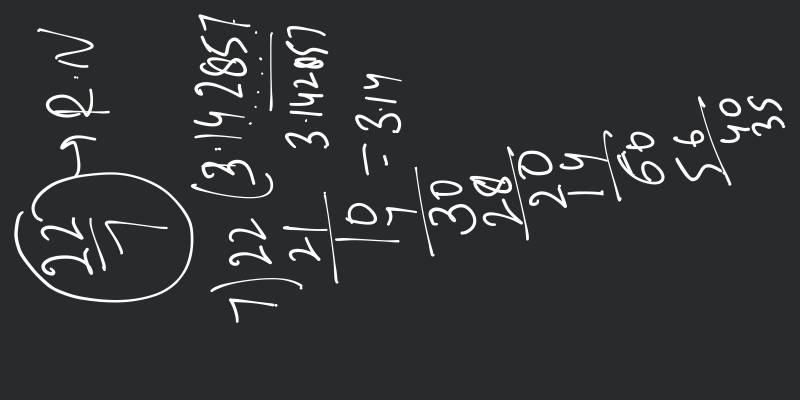 22/7 → R.N
7)22(3.142857....
21
3.142857
10
7
= 3.14
30
28
20
14
60
56
40
35